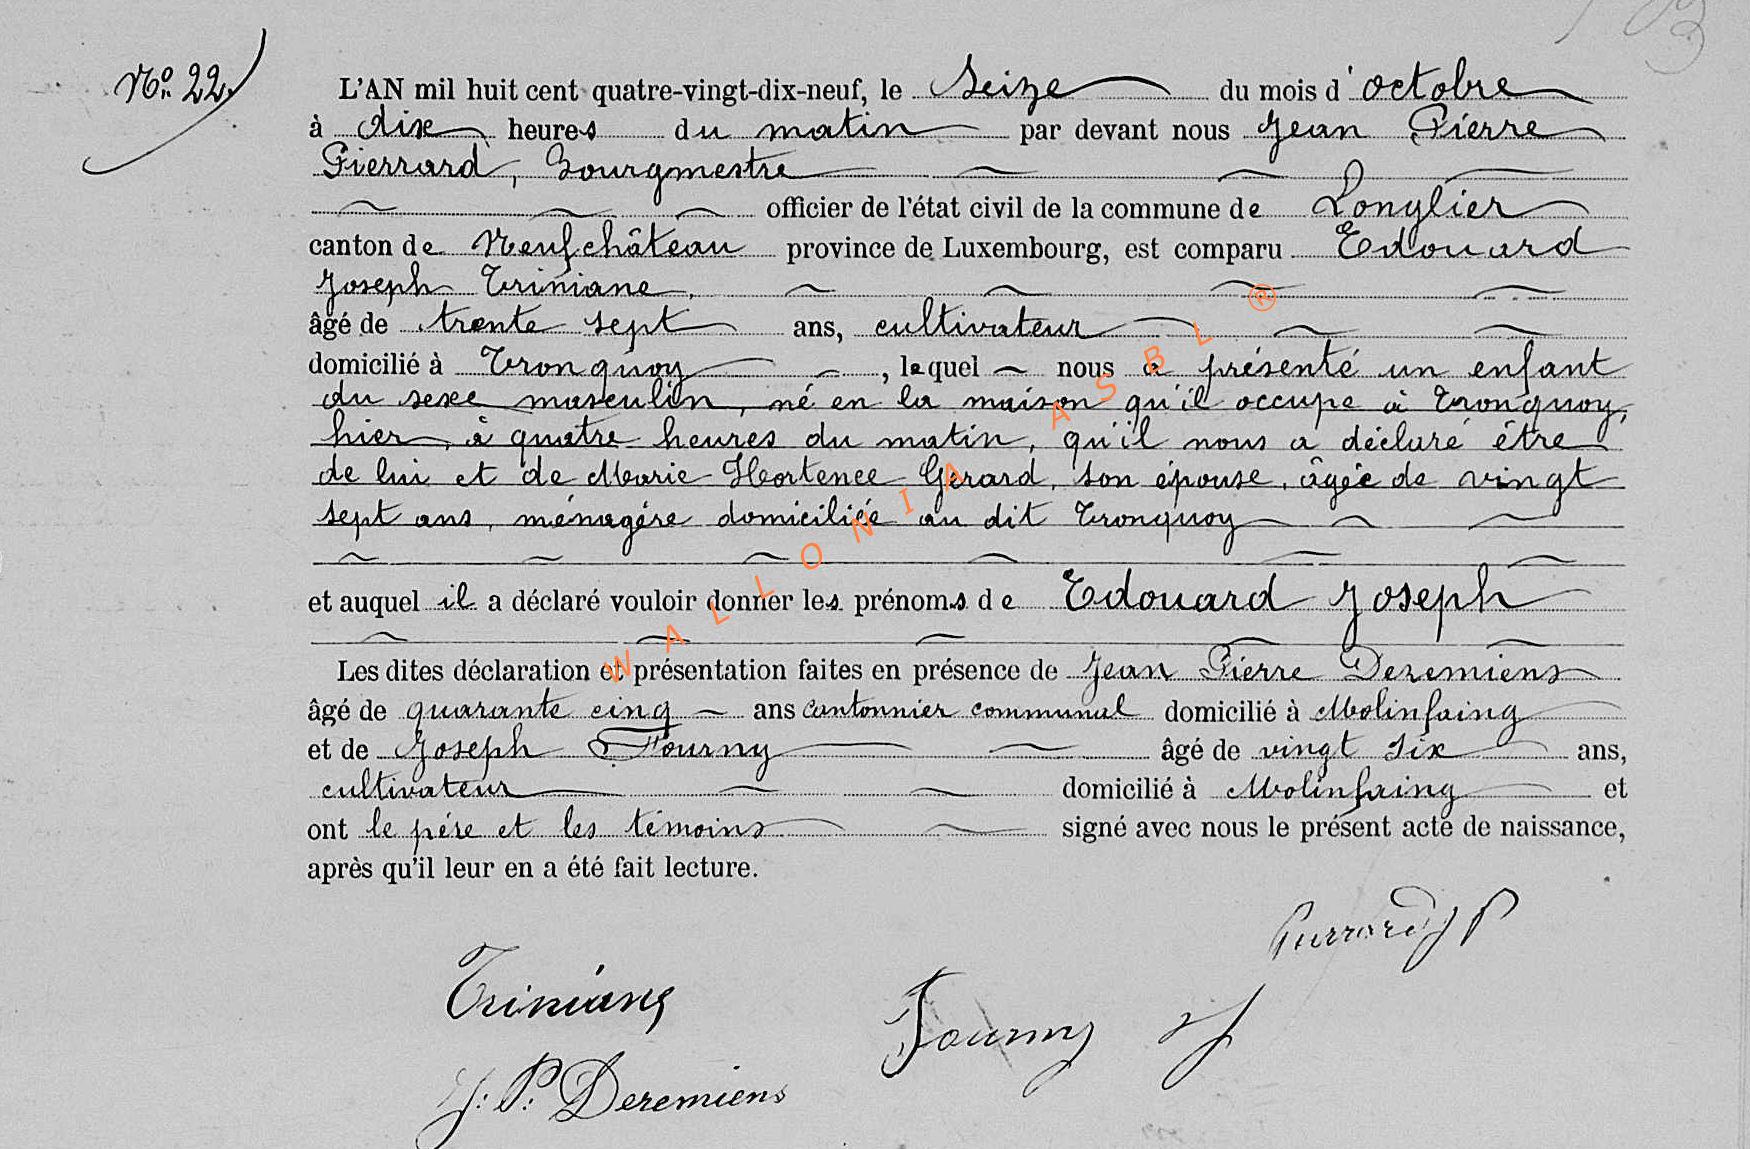 103
No. 22.
L'AN mil huit cent quatre-vingt-dix-neuf, le Seize du mois d'octobre
à dix heures du matin par devant nous Jean Pierre
Pierrard, Bourgmestre
officier de l'état civil de la commune de Longlier
canton de Neufchâteau province de Luxembourg, est comparu Edouard
Joseph Triniane,
âgé de trente sept ans, cultivateur
domicilié à Tronquoy, lequel nous a présenté un enfant
du sexe masculin, né en la maison qu'il occupe à Tronquoy,
hier, à quatre heures du matin, qu'il nous a déclaré être
de lui et de Marie Hortence Gerard, son épouse, âgée de vingt
sept ans, ménagère domiciliée au dit Tronquoy
et auquel il a déclaré vouloir donner les prénoms de Edouard Joseph
Les dites déclaration et présentation faites en présence de Jean Pierre Deremiens
âgé de quarante cinq ans cantonnier communal domicilié à Molinfaing
et de Joseph Fourny âgé de vingt six ans,
cultivateur domicilié à Molinfaing et
ont le père et les témoins signé avec nous le présent acte de naissance,
après qu'il leur en a été fait lecture.
Pierrard J P
Triniane
Fourny J
J. P. Deremiens
WALLONIA ASBL ®